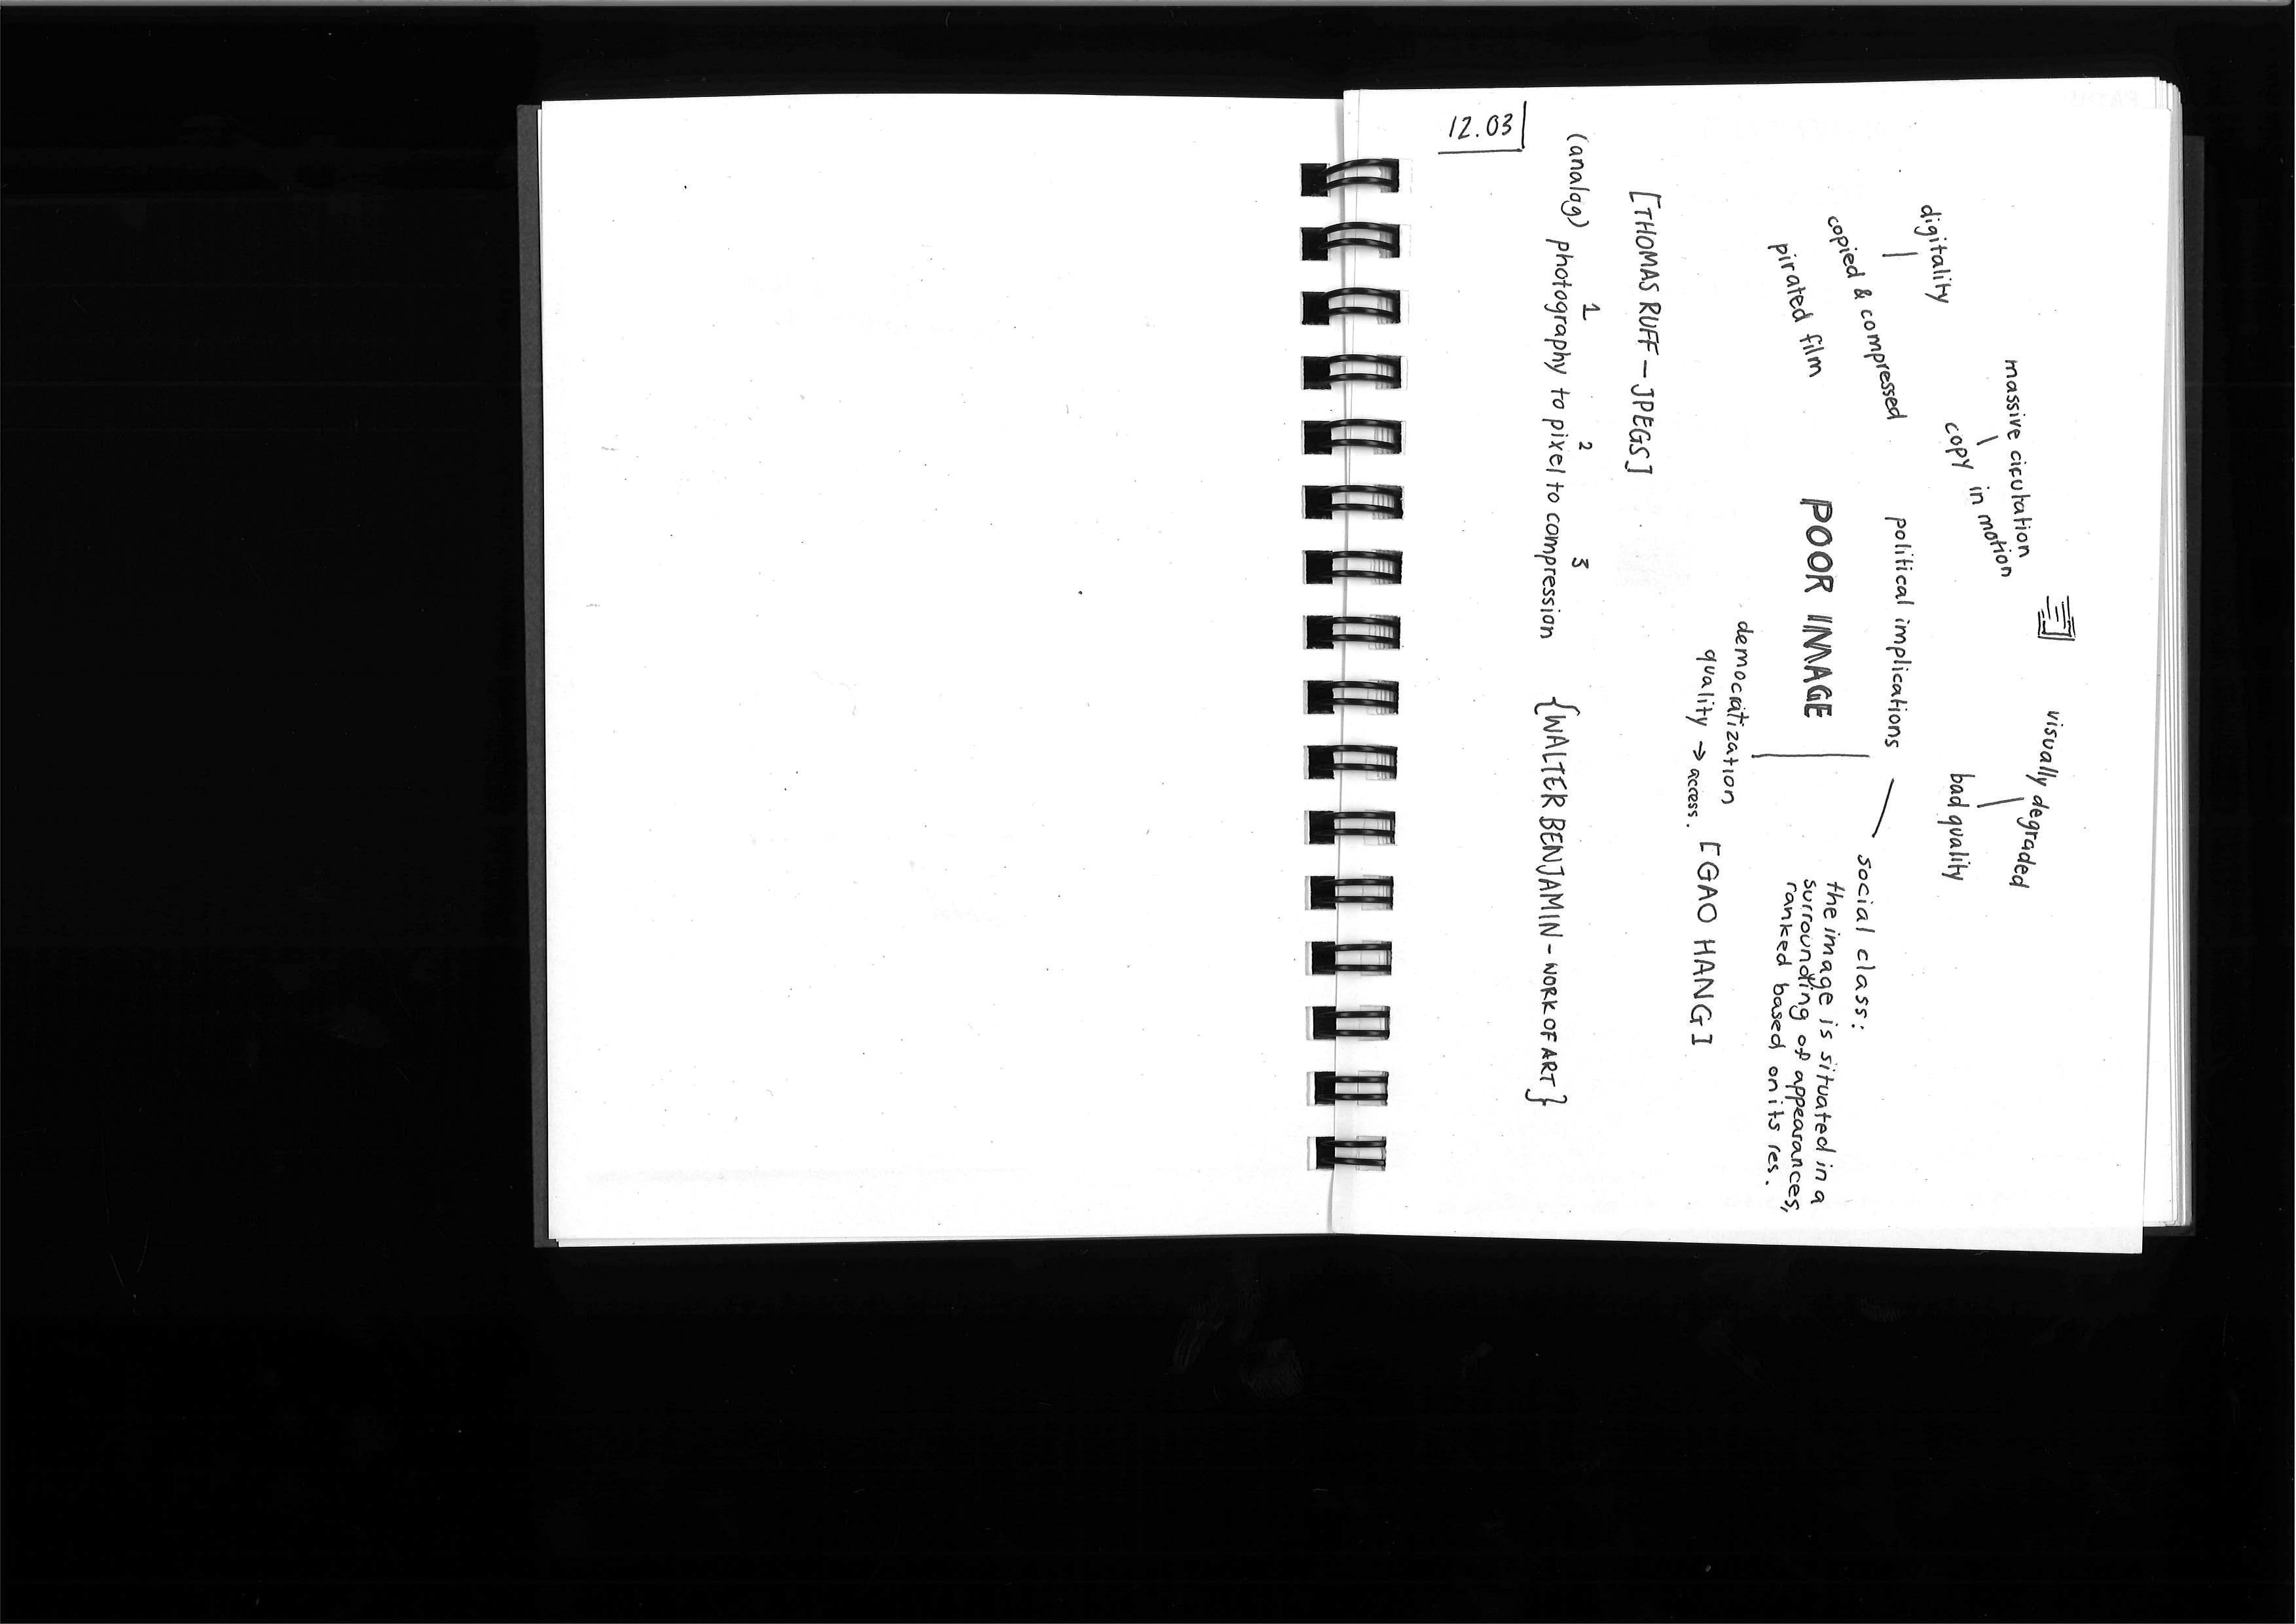 12.03
massive circulation
copy in motion
visually degraded
bad quality
digitality
copied & compressed
pirated film
political implications
POOR IMAGE
social class:
the image is situated in a
surrounding of appearances,
ranked based on its res.
democratization
quality → access.
[GAO HANG]
[THOMAS RUFF – JPEGS]
1 2 3
(analog) photography to pixel to compression
{WALTER BENJAMIN - WORK OF ART}